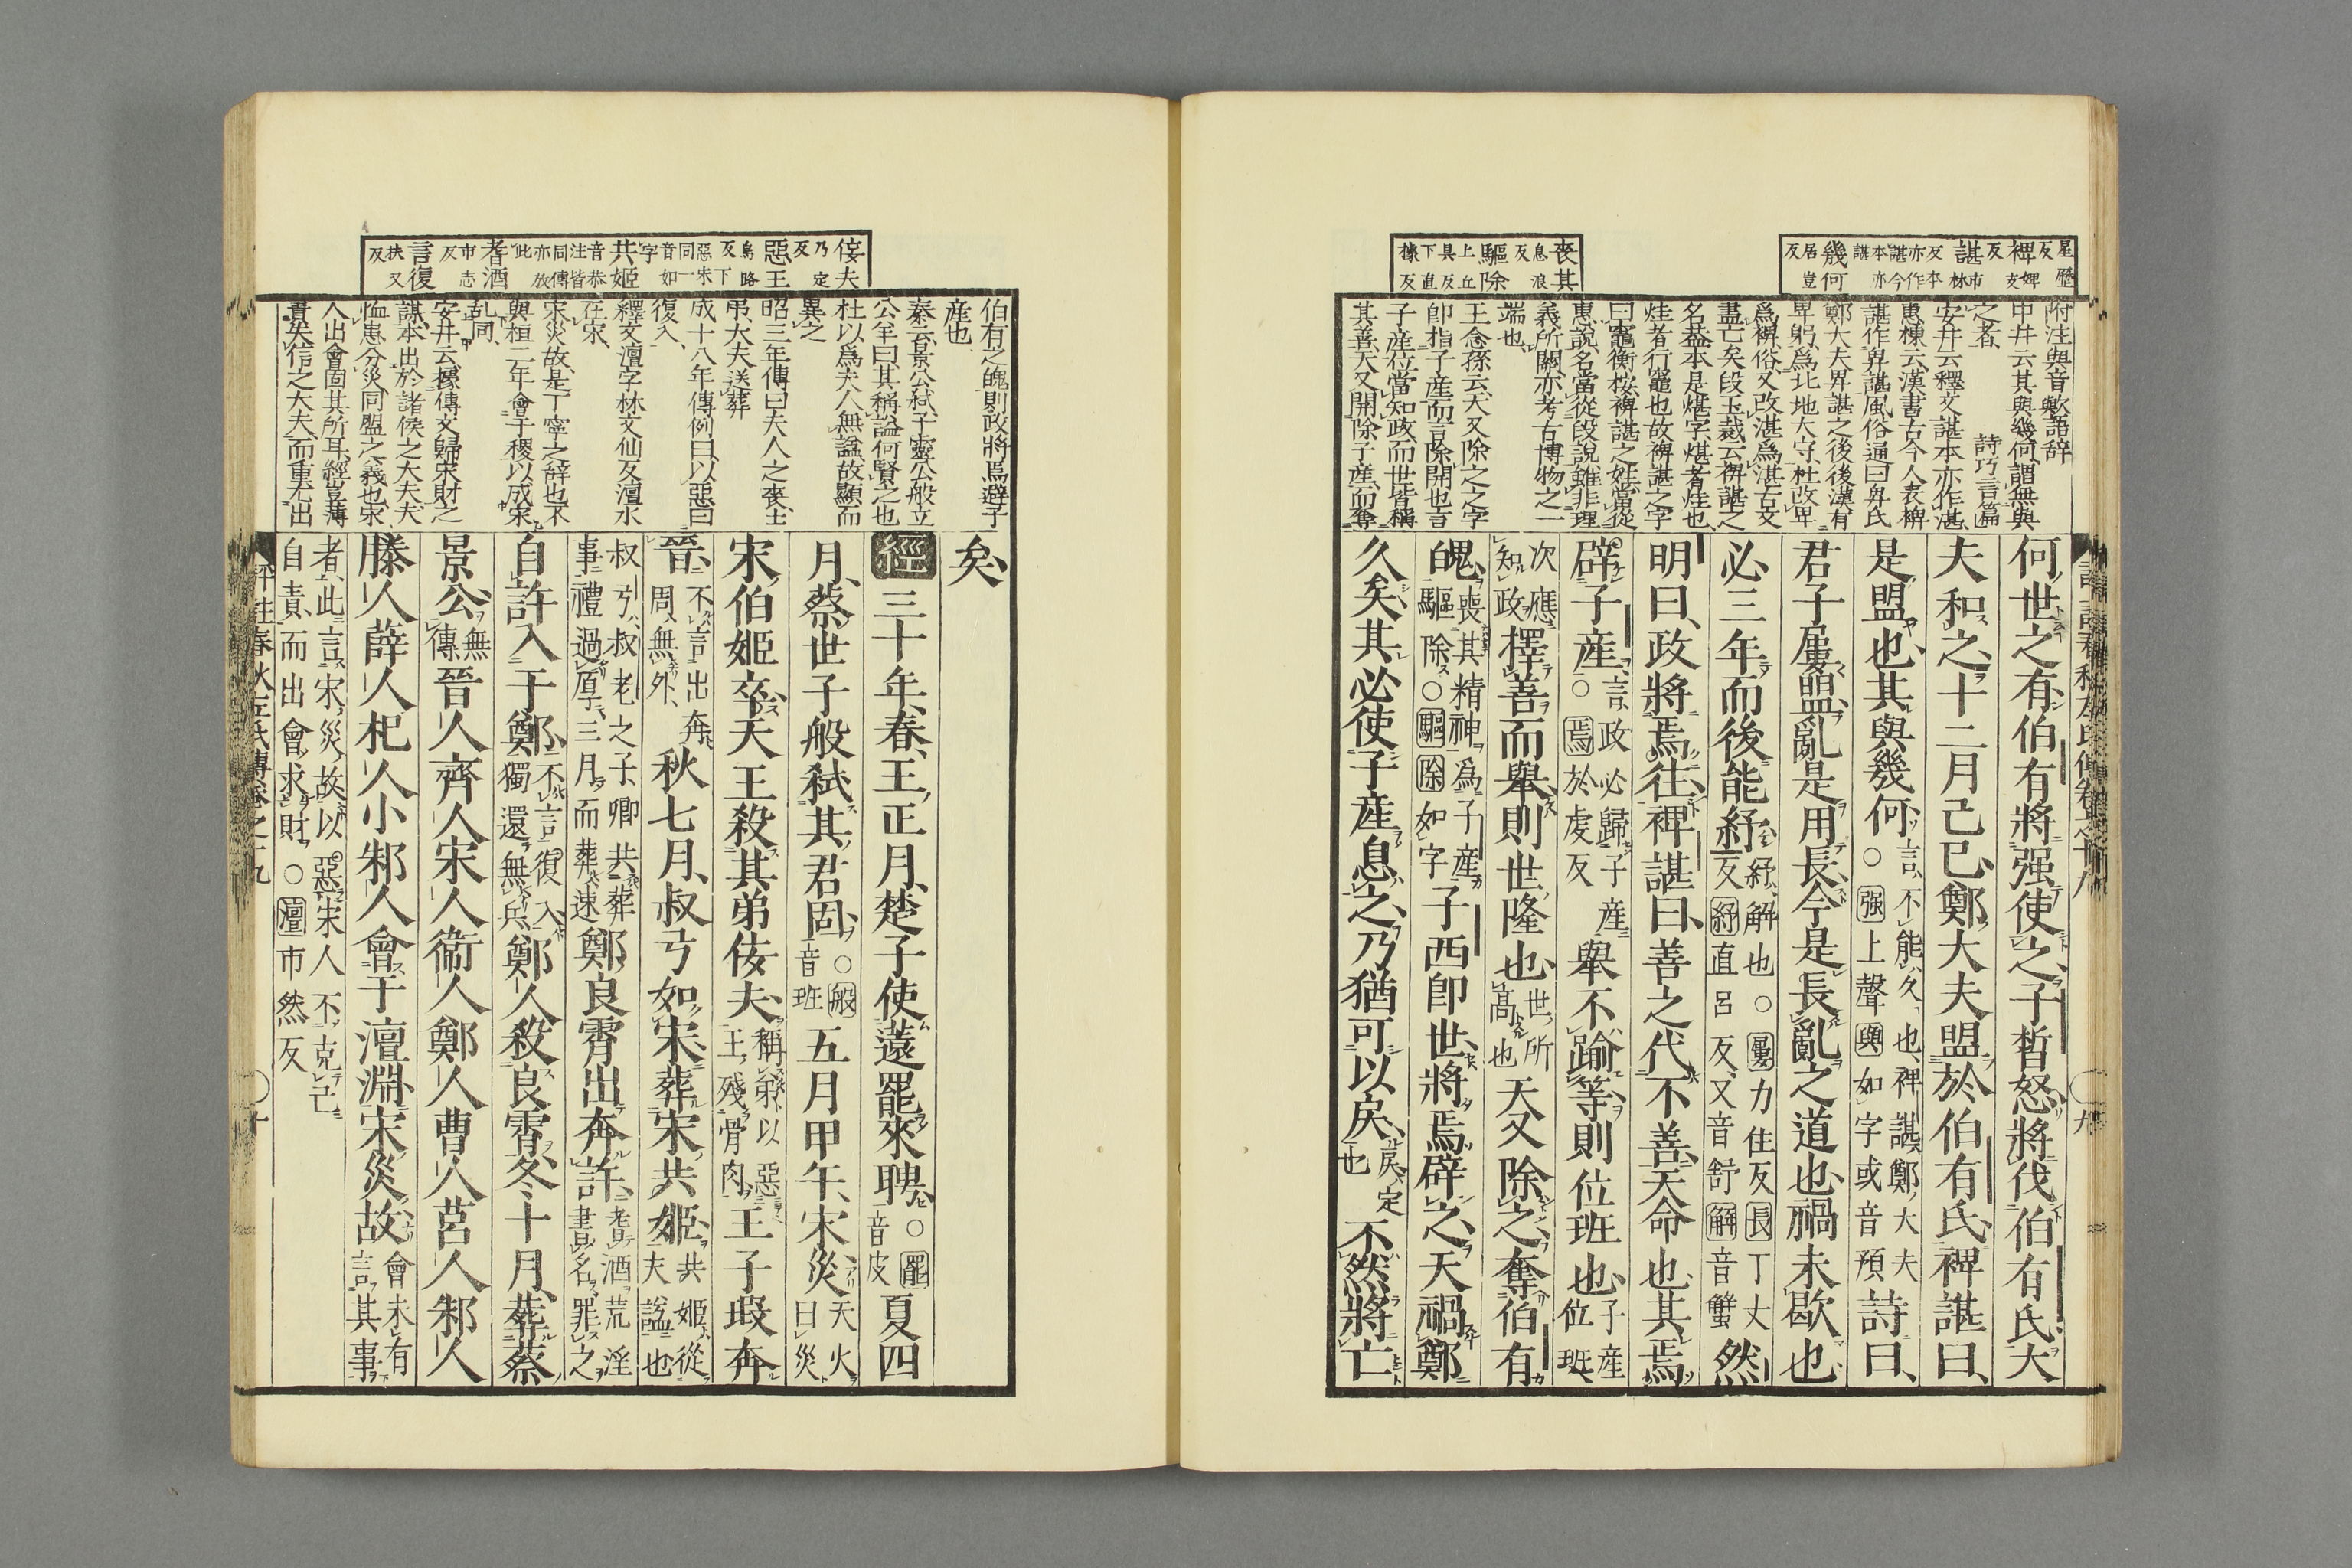 星歷反
裨婢支反
諶市林反本亦作諶今本亦諶
幾何居豈反
喪其息浪反
驅除上丘具反下直據反
附注與音歟語辭
中井云其與幾何謂無與
之者 詩巧言篇
安井云釋文諶本亦作湛
惠棟云漢書古今人表裨
諶作卑諶風俗通曰卑氏
鄭大夫卑諶之後後漢有
卑躬爲北地大守杜改卑
爲裨俗又改湛爲湛古文
盡亡矣段玉裁云裨諶之
名益本是煁字煁者烓也
烓者行竈也故裨諶之字
曰竈衡按裨諶之姓當從
惠說名當從段說雖非理
義所關亦考古博物之一
端也
王念孫云天又除之之字
卽指子產而言除開也言
子產位當知政而世皆稱
其善天又開除子產而奪
何世之有伯有將强使之子晳怒將伐伯有氏大
夫和之十二月己巳鄭大夫盟於伯有氏裨諶曰
是盟也其與幾何言不能久也裨諶鄭大夫○强上聲與如字或音預詩曰
君子屢盟亂是用長今是長亂之道也禍未歇也
必三年而後能紓紓解也○屢力住反長丁丈反紓直呂反又音舒解音蟹然
明曰政將焉往裨諶曰善之代不善天命也其焉
辟子產言政必歸子產○焉於虔反舉不踰等則位班也子產位班
次應知政擇善而舉則世隆也世所高也天又除之奪伯有
魄喪其精神爲子產驅除○驅除如字子西卽世將焉辟之天禍鄭
久矣其必使子產息之乃猶可以戾戾定也不然將亡
佞夫乃定反
惡王烏路反下惡宋同一音如字
共姬音恭注皆同傳亦放此
耆酒市志反
言復扶又反
伯有之魄則政將焉避子
產也
秦云景公弑子靈公般立
公羊曰其稱謚何賢之也
杜以爲夫人無謚故顯而
異之
昭三年傳曰夫人之喪士
弔大夫送葬
成十八年傳例曰以惡曰
復入
釋文澶字林丈仙反澶水
在宋
宋災故是丁寧之辭也不
與桓二年會于稷以成宋
亂同
安井云據傳文歸宋財之
謀本出於諸侯之大夫夫
恤患分災同盟之義也宋
人出會固其所耳經豈薄
責失信之大夫而重尤出
矣
經三十年春王正月楚子使薳罷來聘○罷音皮夏四
月蔡世子般弑其君固○般音班五月甲午宋災天火曰災
宋伯姬卒天王殺其弟佞夫稱弟以惡王殘骨肉王子瑕奔
晉不言出奔周無外秋七月叔弓如宋葬宋共姬共姬從夫謚也
叔弓叔老之子卿共葬事禮過厚三月而葬速鄭良霄出奔許耆酒荒淫書名罪之
自許入于鄭不言復入獨還無兵鄭人殺良霄冬十月葬蔡
景公無傳晉人齊人宋人衞人鄭人曹人莒人邾人
滕人薛人杞人小邾人會于澶淵宋災故會未有言其事
者此言宋災故以惡宋人不克己自責而出會求財○澶市然反